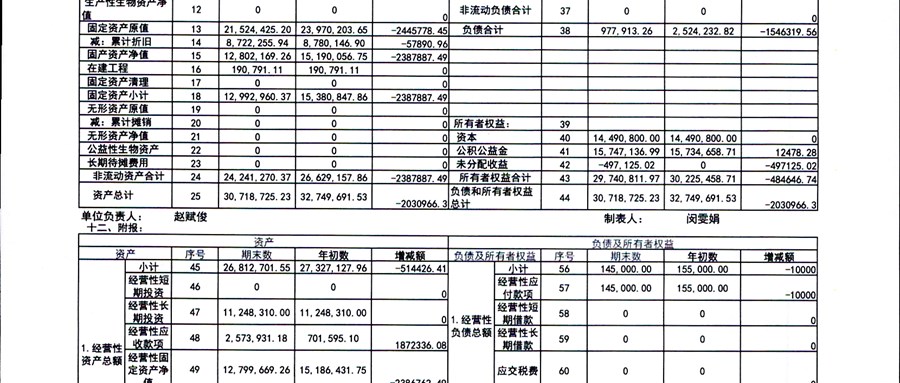 生产性生物资产净值 12 0 0 0 非流动负债合计 37 0 0 0
固定资产原值 13 21,524,425.20 23,970,203.65 -2445778.45 负债合计 38 977,913.26 2,524,232.82 -1546319.56
减：累计折旧 14 8,722,255.94 8,780,146.90 -57890.96
固产资产净值 15 12,802,169.26 15,190,056.75 -2387887.49
在建工程 16 190,791.11 190,791.11 0
固定资产清理 17 0 0 0
固定资产小计 18 12,992,960.37 15,380,847.86 -2387887.49
无形资产原值 19 0 0 0
减：累计摊销 20 0 0 0 所有者权益： 39
无形资产净值 21 0 0 0 资本 40 14,490,800.00 14,490,800.00 0
公益性生物资产 22 0 0 0 公积公益金 41 15,747,136.99 15,734,658.71 12478.28
长期待摊费用 23 0 0 0 未分配收益 42 -497,125.02 0 -497125.02
非流动资产合计 24 24,241,270.37 26,629,157.86 -2387887.49 所有者权益合计 43 29,740,811.97 30,225,458.71 -484646.74
资产总计 25 30,718,725.23 32,749,691.53 -2030966.3 负债和所有者权益总计 44 30,718,725.23 32,749,691.53 -2030966.3
单位负责人： 赵赋俊 制表人： 闵雯娟
十二、附报：
资产 负债及所有者权益
资产 序号 期末数 年初数 增减额 负债及所有者权益 序号 期末数 年初数 增减额
1.经营性资产总额 小计 45 26,812,701.55 27,327,127.96 -514426.41 1.经营性负债总额 小计 56 145,000.00 155,000.00 -10000
经营性短期投资 46 0 0 0 经营性应付款项 57 145,000.00 155,000.00 -10000
经营性长期投资 47 11,248,310.00 11,248,310.00 0 经营性短期借款 58 0 0 0
经营性应收款项 48 2,573,931.18 701,595.10 1872336.08 经营性长期借款 59 0 0 0
经营性固定资产净值 49 12,799,669.26 15,186,431.75 -2386762.49 应交税费 60 0 0 0